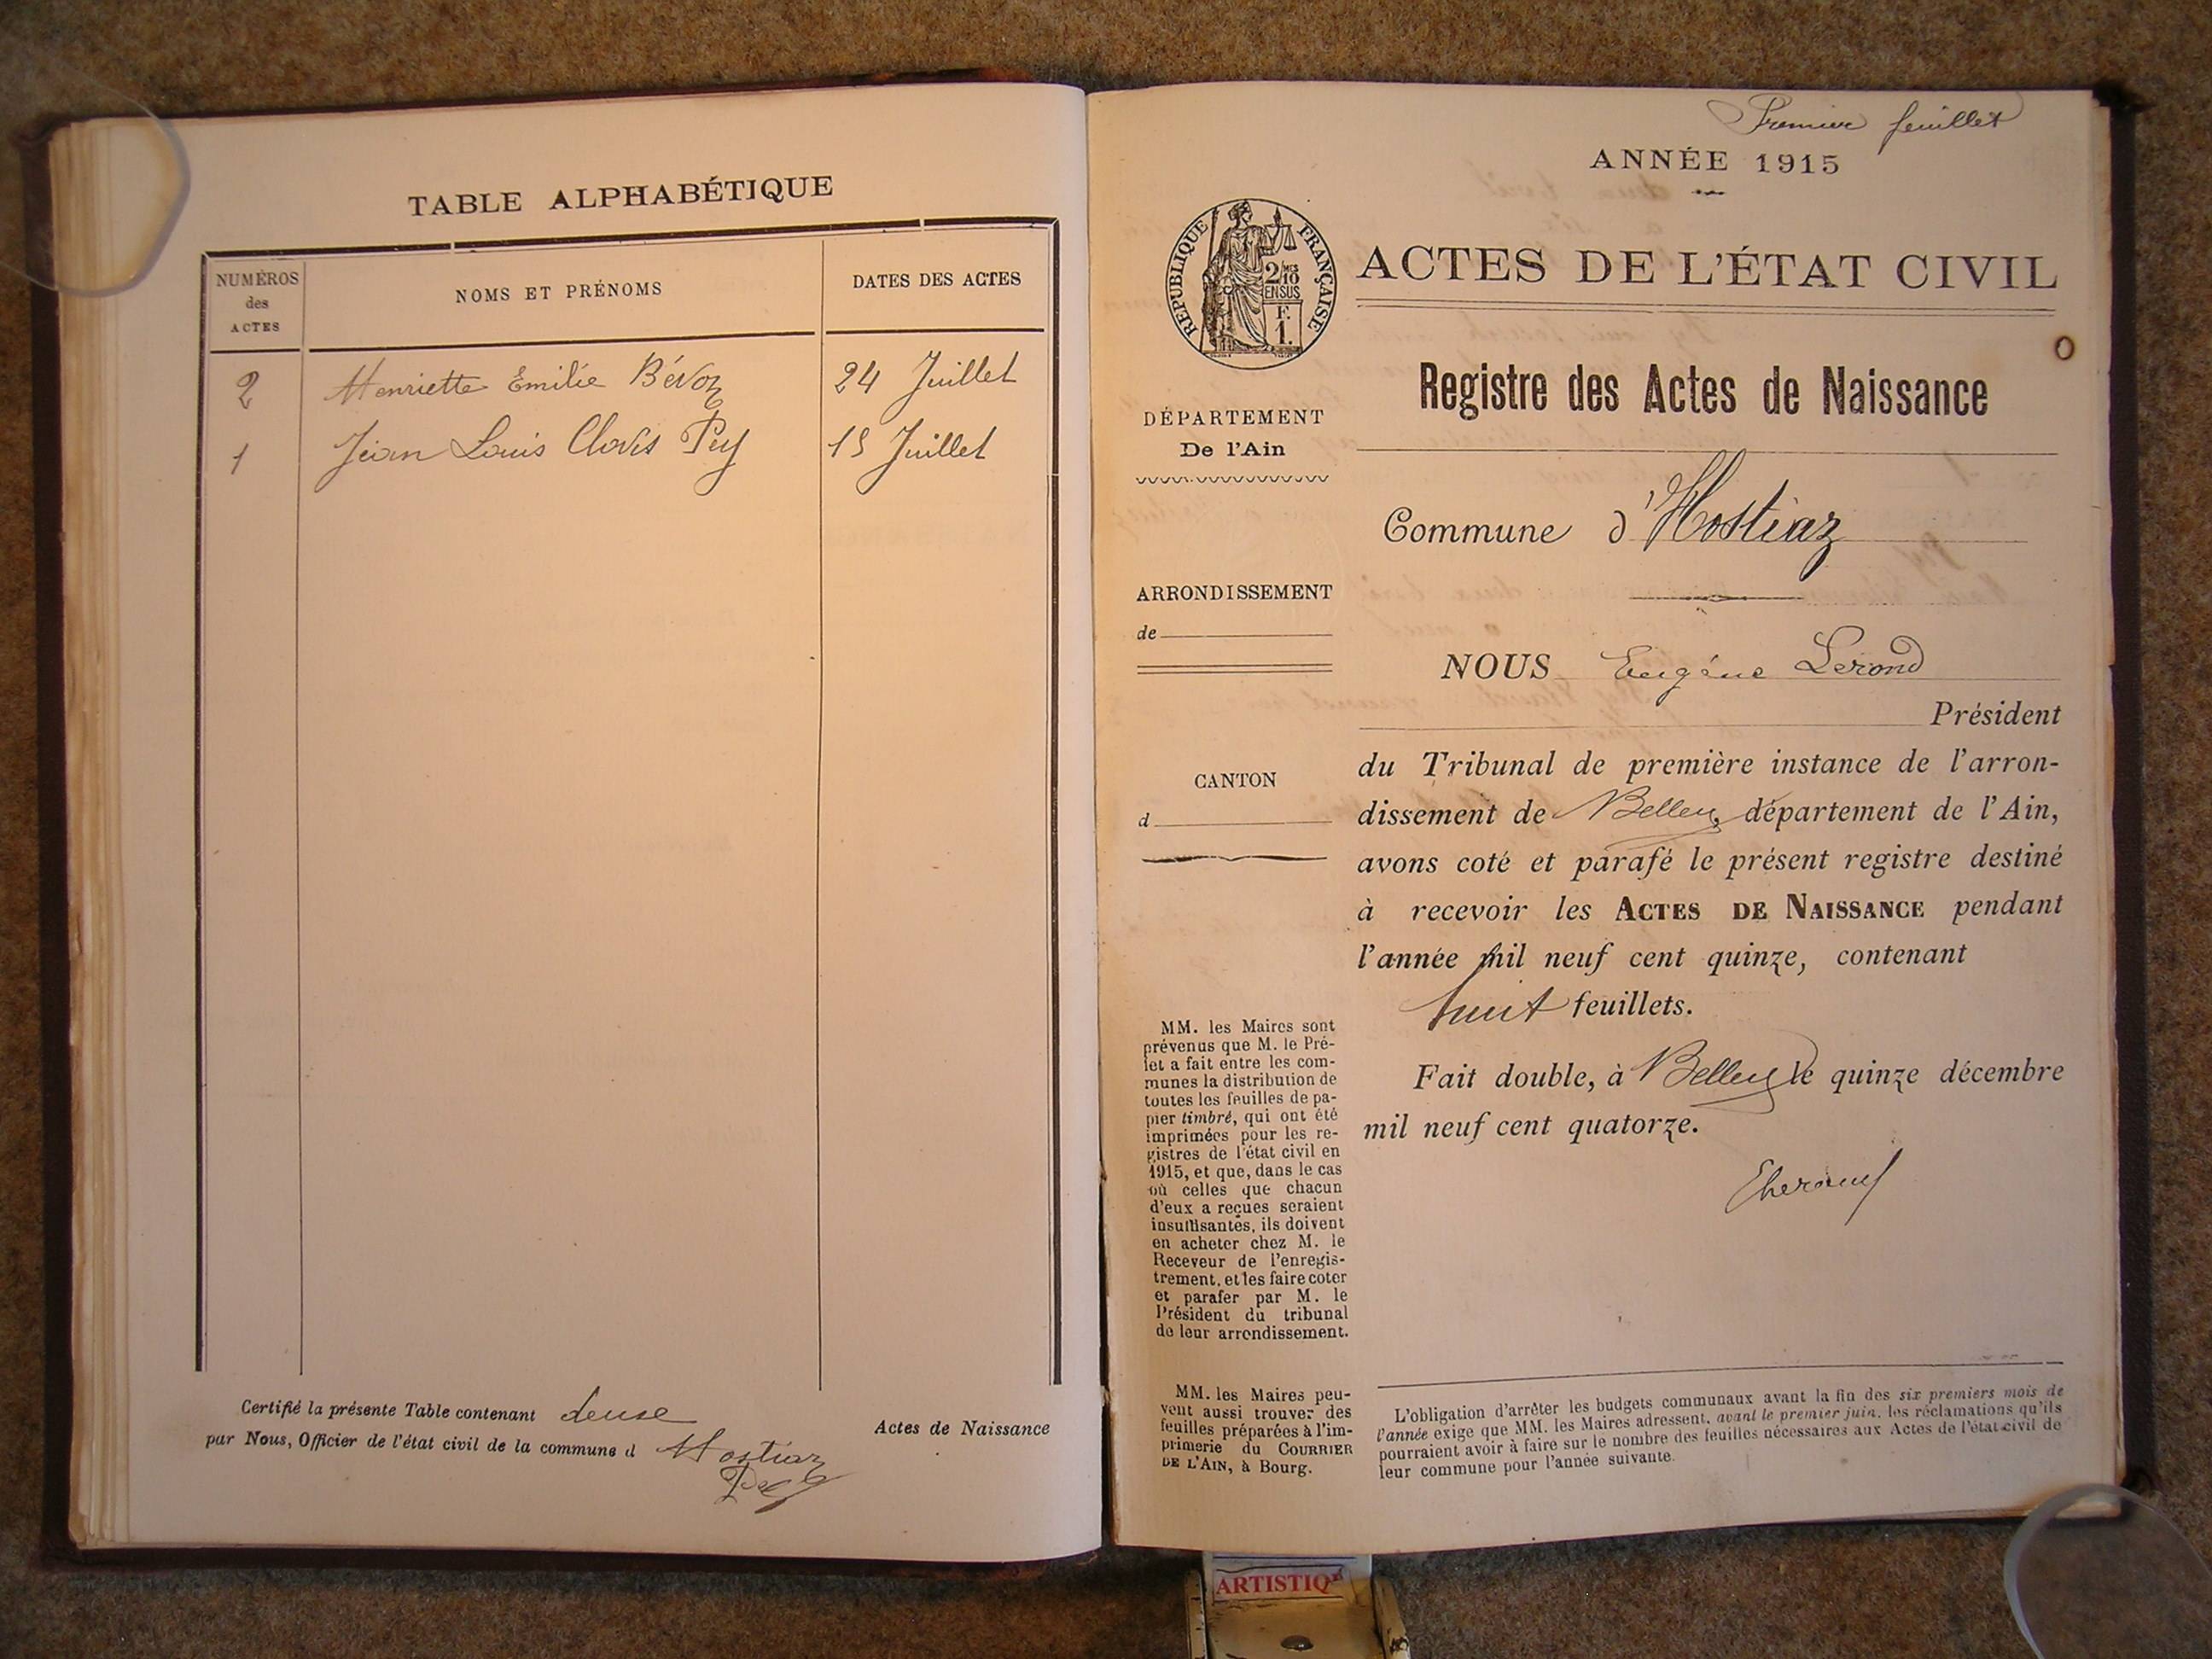 TABLE ALPHABÉTIQUE
NUMÉROS
des
ACTES
NOMS ET PRÉNOMS
DATES DES ACTES
2 Henriette Emilie Bévoz 24 Juillet
1 Jean Louis Clovis Pey 15 Juillet
Certifié la présente Table contenant deuse Actes de Naissance
par Nous, Officier de l'état civil de la commune d Hostiaz
Premier feuillet
ANNÉE 1915
RÉPUBLIQUE FRANÇAISE
2/10
EN SUS
F.
1.
ACTES DE L'ÉTAT CIVIL
Registre des Actes de Naissance
DÉPARTEMENT
De l'Ain
Commune d'Hostiaz
ARRONDISSEMENT
de
CANTON
d
NOUS Eugène Lerond
Président
du Tribunal de première instance de l'arron-
dissement de Belley, département de l'Ain,
avons coté et parafé le présent registre destiné
à recevoir les ACTES DE NAISSANCE pendant
l'année mil neuf cent quinze, contenant
huit feuillets.
Fait double, à Belley le quinze décembre
mil neuf cent quatorze.
MM. les Maires sont
prévenus que M. le Pré-
fet a fait entre les com-
munes la distribution de
toutes les feuilles de pa-
pier timbré, qui ont été
imprimées pour les re-
gistres de l'état civil en
1915, et que, dans le cas
où celles que chacun
d'eux a reçues seraient
insuffisantes, ils doivent
en acheter chez M. le
Receveur de l'enregis-
trement, et les faire coter
et parafer par M. le
Président du tribunal
de leur arrondissement.
MM. les Maires peu-
vent aussi trouver des
feuilles préparées à l'im-
primerie du COURRIER
DE L'AIN, à Bourg.
L'obligation d'arrêter les budgets communaux avant la fin des six premiers mois de
l'année exige que MM. les Maires adressent, avant le premier juin, les réclamations qu'ils
pourraient avoir à faire sur le nombre des feuilles nécessaires aux Actes de l'état civil de
leur commune pour l'année suivante.
ARTISTIQ